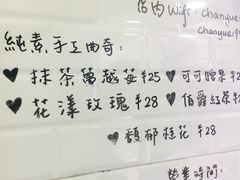 店内 Wifi: chanyue
chanyue
純素手工曲奇:
♥ 抹茶蔓越莓 ¥25 ♥ 可可
♥ 花漾玫瑰 ¥28 ♥ 伯爵紅茶
♥ 馥郁桂花 ¥28
營業時間: